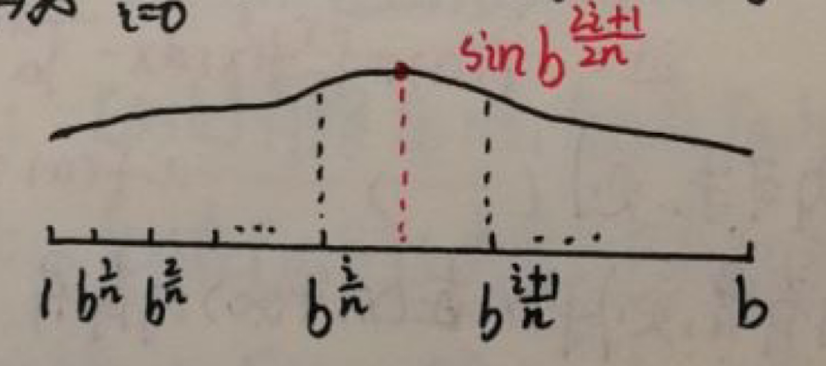 i=0
sin b^{\frac{2i+1}{2n}}
... ...
1 b^{\frac{1}{n}} b^{\frac{2}{n}} b^{\frac{i}{n}} b^{\frac{i+1}{n}} b